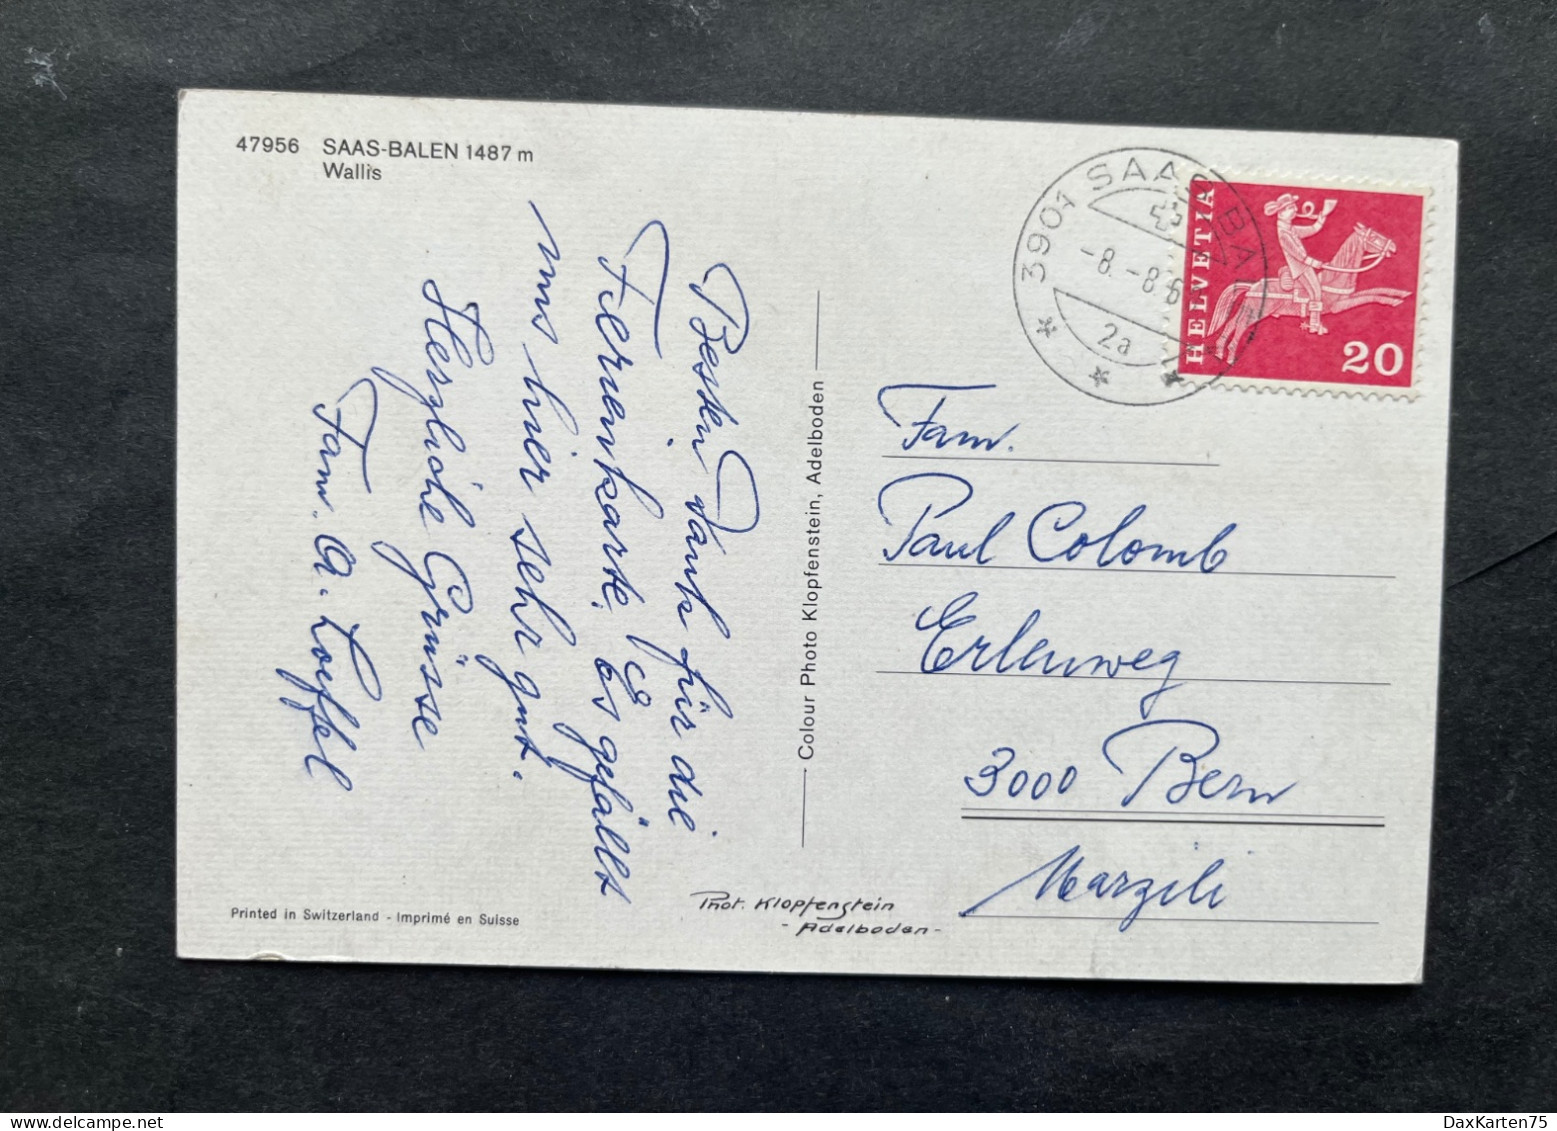 47956 SAAS-BALEN 1487 m
Wallis
Besten Dank für die
Ferienkarte. Es gefällt
uns hier sehr gut.
Herzliche Grüsse
Fam. A. Loeffel
Printed in Switzerland - Imprimé en Suisse
Colour Photo Klopfenstein, Adelboden
Phot. Klopfenstein
- Adelboden -
3901 SAAS-BA
-8.-8.6
2a
HELVETIA
20
Fam.
Paul Colomb
Erlenweg
3000 Bern
Marzili
DaxKarten75